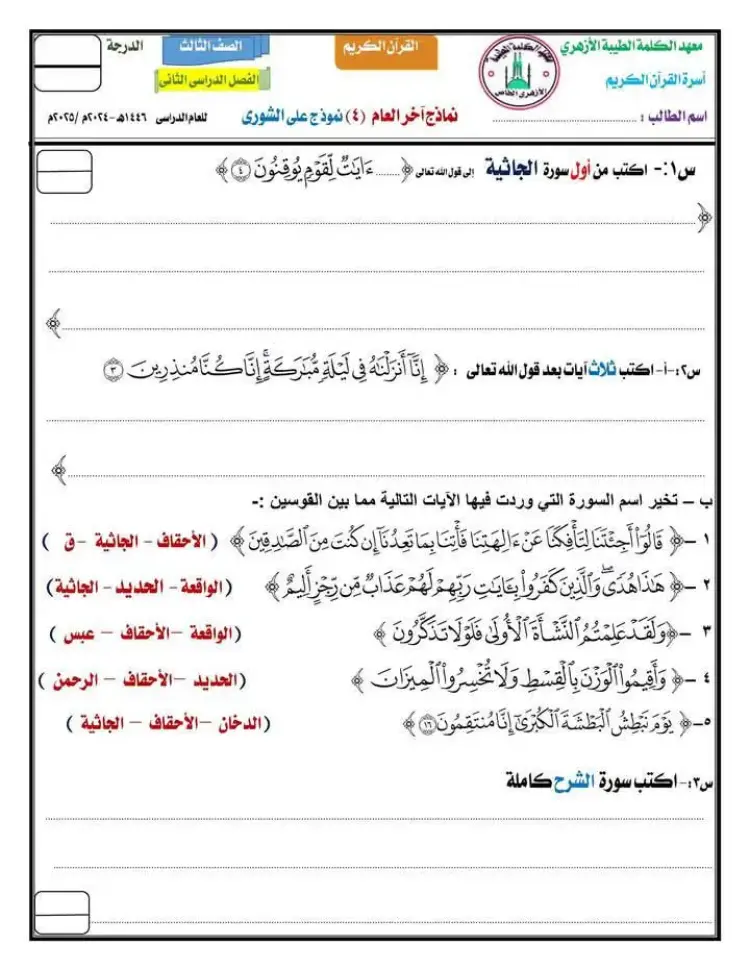 معهد الكلمة الطيبة الأزهري
أسرة القرآن الكريم
اسم الطالب : ................................
القرآن الكريم
الصف الثالث
الفصل الدراسى الثانى
الدرجة
نماذج آخر العام (٤) نموذج على الشورى
للعام الدراسى ١٤٤٦هـ -٢٠٢٤م /٢٠٢٥م
س١:- اكتب من أول سورة الجاثية إلى قول الله تعالى ﴿ ........ ءَايَٰتٞ لِّقَوۡمٖ يُوقِنُونَ ٤ ﴾
س٢:-أ- اكتب ثلاث آيات بعد قول الله تعالى : ﴿ إِنَّآ أَنزَلۡنَٰهُ فِي لَيۡلَةٖ مُّبَٰرَكَةٍۚ إِنَّا كُنَّا مُنذِرِينَ ٣
ب – تخير اسم السورة التي وردت فيها الآيات التالية مما بين القوسين :-
١ -﴿ قَالُوٓاْ أَجِئۡتَنَا لِتَأۡفِكَنَا عَنۡ ءَالِهَتِنَا فَأۡتِنَا بِمَا تَعِدُنَآ إِن كُنتَ مِنَ ٱلصَّٰدِقِينَ ﴾ ( الأحقاف - الجاثية - ق )
٢ -﴿ هَٰذَا هُدٗىۖ وَٱلَّذِينَ كَفَرُواْ بِـَٔايَٰتِ رَبِّهِمۡ لَهُمۡ عَذَابٞ مِّن رِّجۡزٍ أَلِيمٌ ﴾ (الواقعة - الحديد - الجاثية)
٣ -﴿وَلَقَدۡ عَلِمۡتُمُ ٱلنَّشۡأَةَ ٱلۡأُولَىٰ فَلَوۡلَا تَذَكَّرُونَ ﴾ (الواقعة –الأحقاف – عبس )
٤ -﴿ وَأَقِيمُواْ ٱلۡوَزۡنَ بِٱلۡقِسۡطِ وَلَا تُخۡسِرُواْ ٱلۡمِيزَانَ ﴾ (الحديد –الأحقاف – الرحمن )
٥-﴿ يَوۡمَ نَبۡطِشُ ٱلۡبَطۡشَةَ ٱلۡكُبۡرَىٰٓ إِنَّا مُنتَقِمُونَ ١٦ ﴾ (الدخان –الأحقاف – الجاثية )
س٣:- اكتب سورة الشرح كاملة